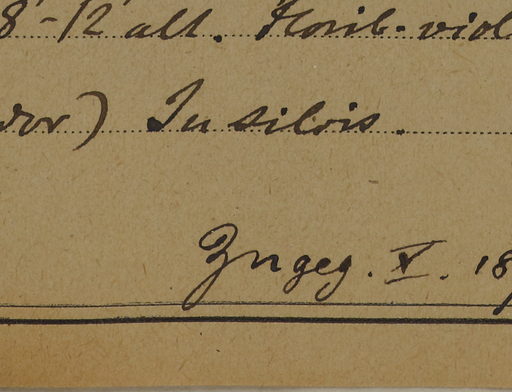 8'-12' alt. Florib. viol
dor) In silvis.
Zngeg. V. 18